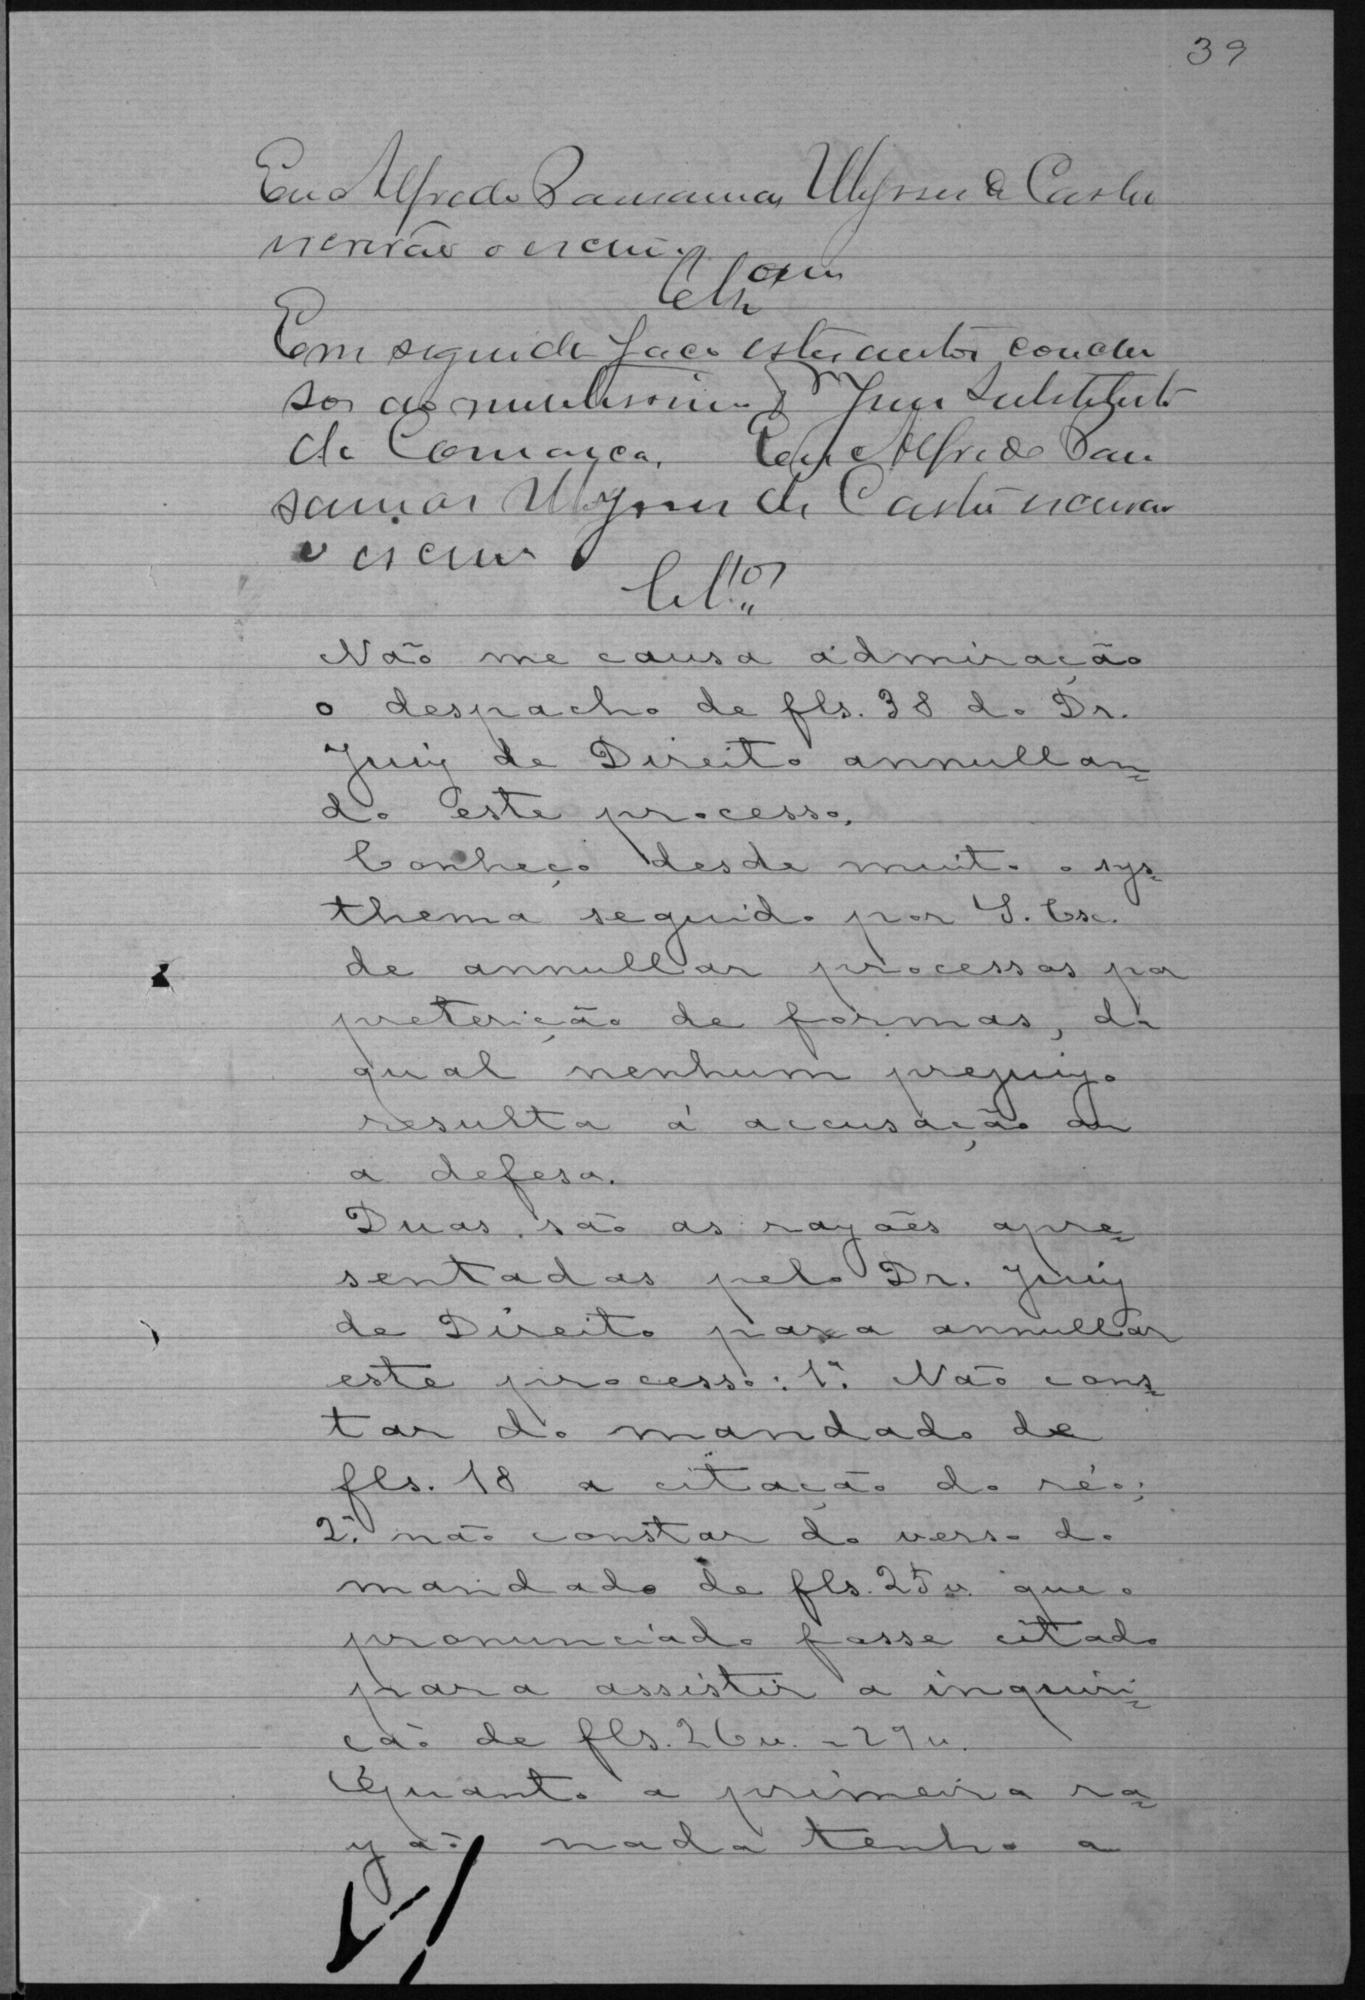 39
Eu Alfredo Pausanias Ulysses de Castro
escrivão o escrevi.
Clsam
Em seguida faço estes autos conclu
sos ao meretissimo Dr Juiz Substituto
da Comarca. Eu Alfredo Pau
sanias Ulysses de Castro escrivão
o escrevi
Cl.os
Não me causa admiração
o despacho de fls. 38 do Dr.
Juiz de Direito annullan=
do este processo.
Conheço desde muito o sys=
thema seguido por S. Ex.
de annullar processos por
preterição de formas, da
qual nenhum prejuizo
resulta á accusação ou
a defesa.
Duas são as razões apre=
sentadas pelo Dr. Juiz
de Direito para annullar
este processo: 1ª. Não cons=
tar do mandado de
fls. 18 a citação do réo;
2ª. não constar do verso do
mandado de fls. 25v. que o
pronunciado fosse citado
para assistir a inquiri=
cão de fls. 26v. - 29v.
Quanto a primeira ra=
zão nada tenho a